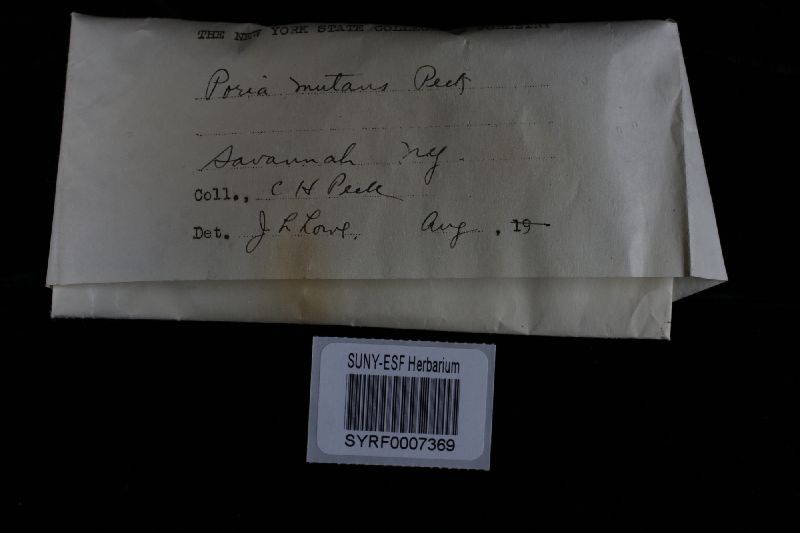 THE NEW YORK STATE COLLEGE FORESTRY
Poria mutans Peck
Savannah NY
Coll., C H Peck
Det. J L Lowe, Aug , 19
SUNY-ESF Herbarium
SYRF0007369